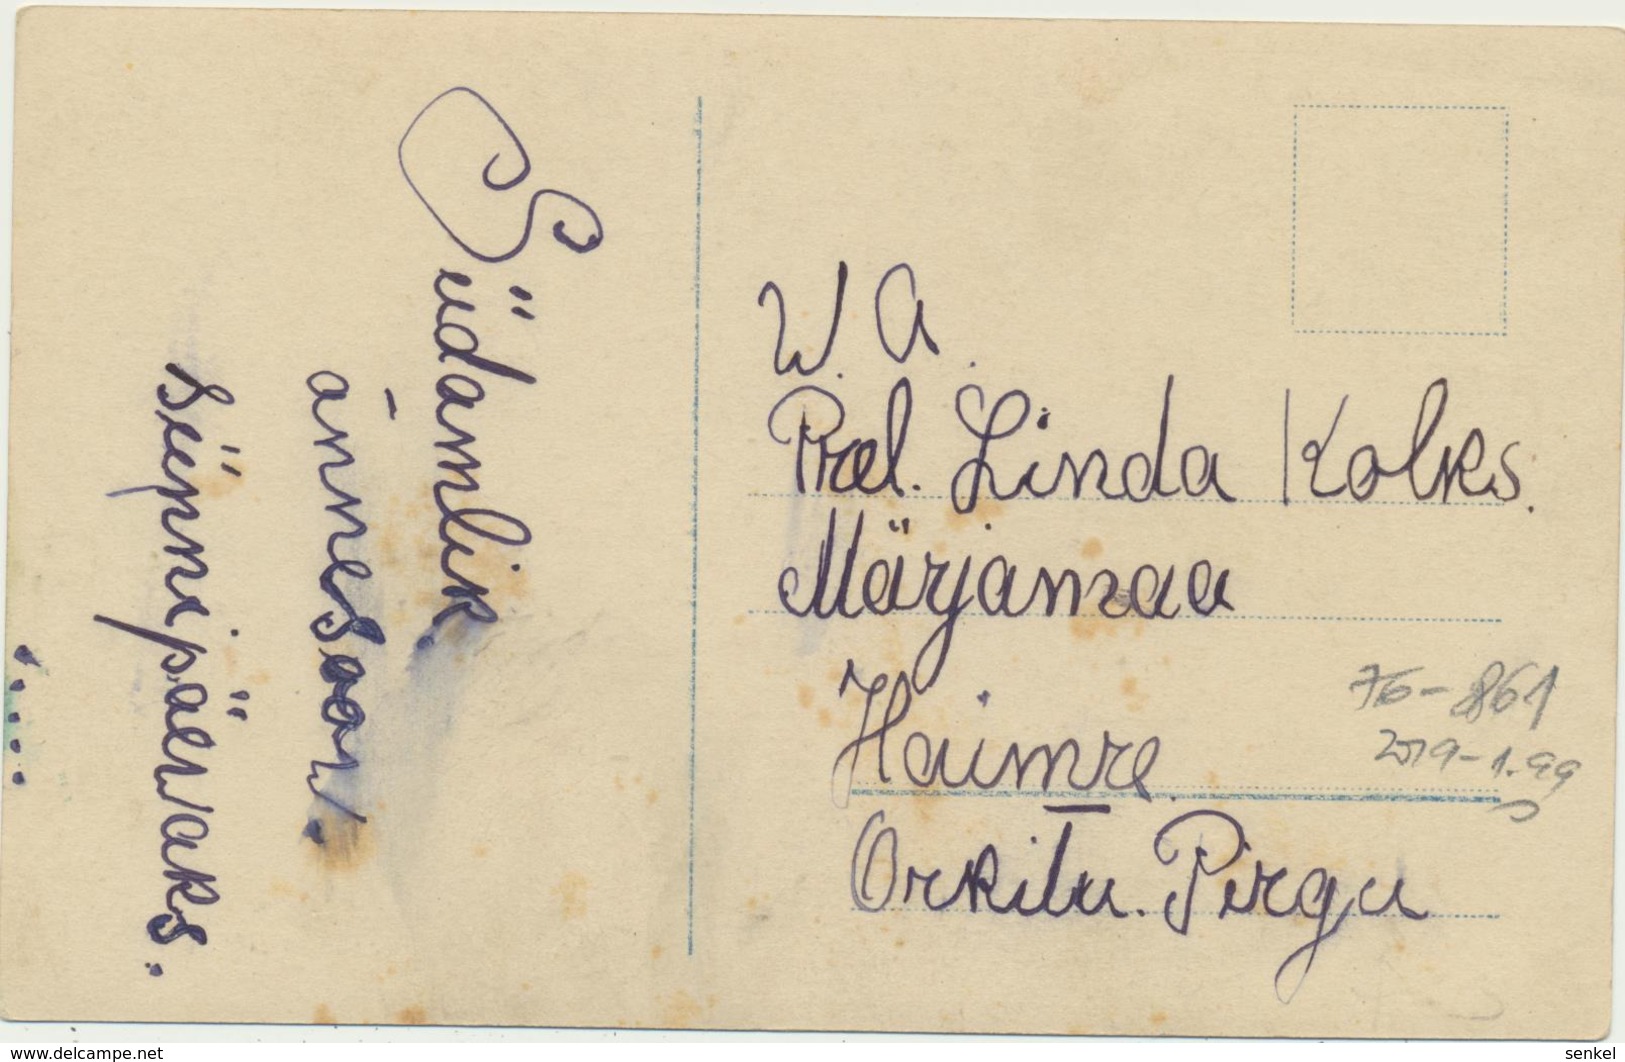 Südamlik
õnnesoow.
Sünnipäewaks.
W. A.
Prel. Linda Kolks.
Märjamaa
Haimre
Orkitu. Pirgu
76-861
2019-1.99
www.delcampe.net
senkel